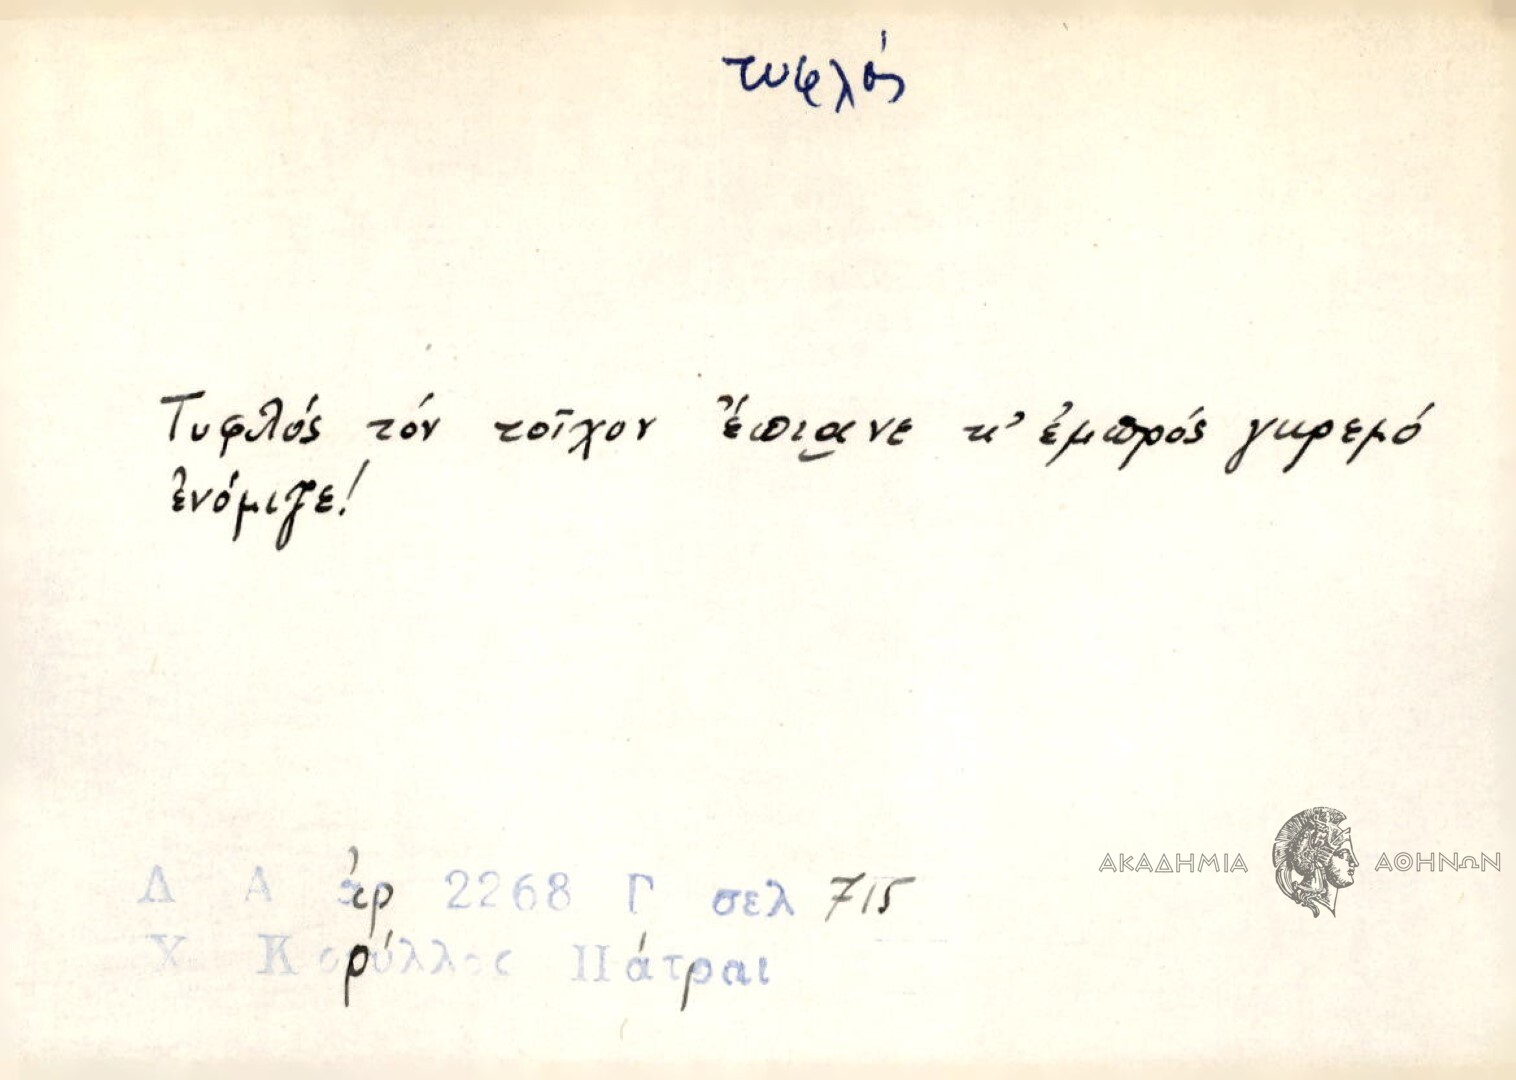 τυφλός
Τυφλός τόν τοῖχον ἔπιανε κ' ἐμπρός γκρεμό
ἐνόμιζε!
ΑΚΑΔΗΜΙΑ ΑΘΗΝΩΝ
Λ Α ἀρ 2268 Γ σελ 715
Χ Κορύλλος Πάτραι